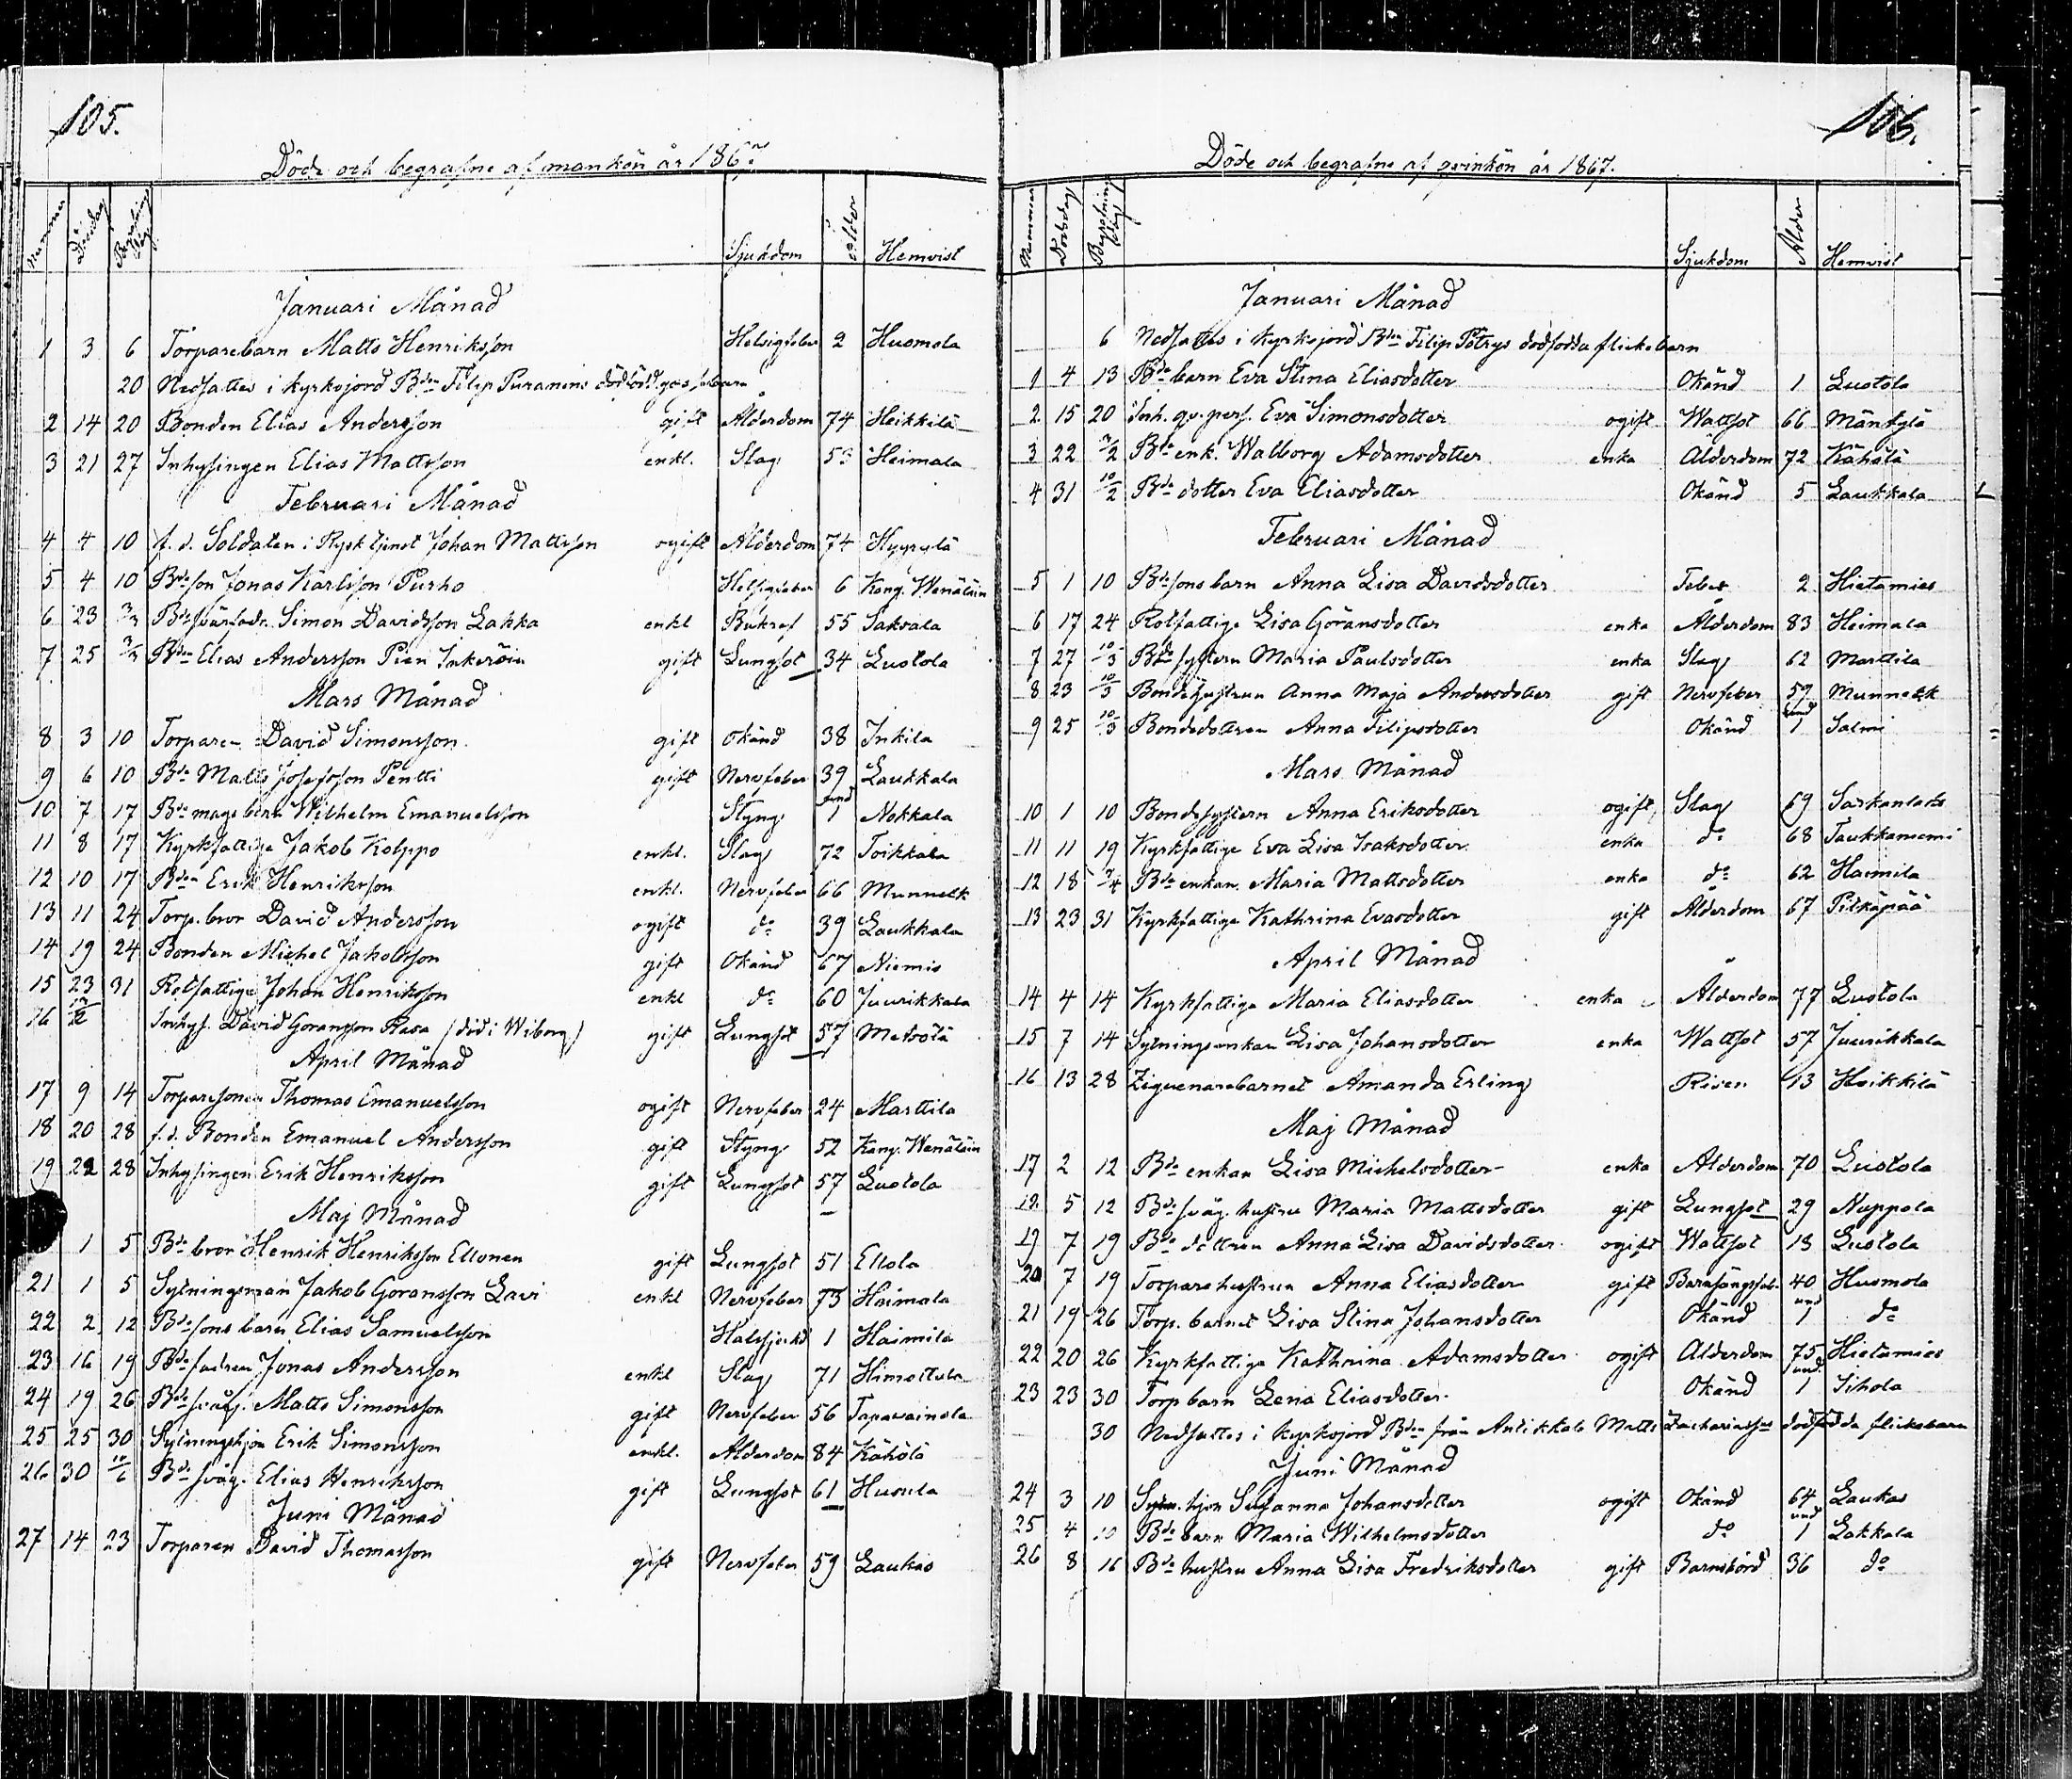 105.
Döde och begrafne af mankön år 1867
Nummer Dödsdag Begrafnings dag Sjukdom Ålder Hemvist
Januari Månad
1 3 6 Torparebarn Matts Henriksson 2 Husmola
20 Nedsattes i kyrkojord Bdn Filip Puranens
2 14 20 Bonden Elias Andersson gift Ålderdom 74 Heikkilä
3 21 27 Inhysingen Elias Mattsson enkl. Slag 53 Heimala
Februari Månad
4 4 10 f. d. Soldaten i Rysk tjenst Johan Mattsson ogift Ålderdom 74 Hyyrylä
5 4 10 Bde son Jonas Karlsson Purho 6 Kang. Wenäläin
6 23 3/3 Simon Davidsson Lakka enkl Bukref 55 Saksala
7 25 3/3 Bdn Elias Andersson Pien Inkeröin gift Lungsot 34 Lustola
Mars Månad
8 3 10 Torparen David Simonsson gift Okänd 38 Inkila
9 6 10 Bde Matts Josefsson Pentti gift Nervfeber 39 Laukkala
10 7 17 Bde mags barn Wilhelm Emanuelsson Styng 1 Nokkala
11 8 17 Kyrkfattige Jakob Kolppo enkl. Slag 72 Toikkala
12 10 17 Bden Erik Henriksson enkl. Nervfeber 66 Munnelk
13 11 24 Torp. bror David Andersson ogift do 39 Laukkala
14 19 24 Bonden Michel Jakobsson gift Okänd 67 Niemis
15 23 31 Rotfattige Johan Henriksson enkl do 60 Juurikkala
16 Inhys. David Göransson Rasa (död i Wiborg) gift Lungsot 57 Metsola
April Månad
17 9 14 Torparesonen Thomas Emanuelsson ogift Nervfeber 24 Marttila
18 20 28 f. d. Bonden Emanuel Andersson gift Styng 52 Kang. Wenäläin
19 22 28 Inhysingen Erik Henriksson gift Lungsot 57 Lustola
Maj Månad
1 5 Bde bror Henrik Henriksson Ellonen gift Lungsot 51 Ellola
21 1 5 Sytningsman Jakob Göransson Lavi enkl Nervfeber 73 Heimala
22 2 12 Bde sons barn Elias Samuelsson Halssjukd 1 Haimila
23 16 19 Bde fadren Jonas Andersson enkl Slag 71 Himottula
24 19 26 Bde svåg. Matts Simonsson gift Nervfeber 56 Tapavainola
25 25 30 Sytningshjon Erik Simonsson enkl. Ålderdom 84 Kähölä
26 30 10/6 Bde svåg. Elias Henriksson gift Lungsot 61 Husula
Juni Månad
27 14 23 Torparen David Thomasson gift Nervfeber 59 Laukas
106.
Döde och begrafne af qvinkön år 1867.
Nummer Dödsdag Begrafnings dag Sjukdom Ålder Hemvist
Januari Månad
6 Nedsattes i kyrkojord Bden Filip Pötrys dödfödda flickebarn
1 4 13 Bde barn Eva Stina Eliasdotter Okänd 1 Lustola
2 15 20 Inh. qv. pers. Eva Simonsdotter ogift Wattsot 66 Mäntylä
3 22 3/2 Bde enk. Walborg Adamsdotter enka Ålderdom 72 Kähölä
4 31 10/2 Bde dotter Eva Eliasdotter Okänd 5 Laukkala
Februari Månad
5 1 10 Bde sons barn Anna Lisa Davidsdotter Feber 2 Hietamies
6 17 24 Rotfattige Lisa Göransdotter enka Ålderdom 83 Heimala
7 27 10/3 Bde systern Maria Paulsdotter enka Slag 62 Marttila
8 23 10/3 Bondehustrun Anna Maja Andersdotter gift Nervfeber 59 Munnelk
9 25 10/3 Bondedottren Anna Filipsdotter Okänd 1 Salmi
Mars Månad
10 1 10 Bondesystern Anna Eriksdotter ogift Slag 69 Sarkanlaks
11 11 19 Kyrkfattige Eva Lisa Isaksdotter enka do 68 Taukkaniemi
12 18 7/4 Bde enkan Maria Mattsdotter enka do 62 Haimila
13 23 31 Kyrkfattige Kathrina Evasdotter gift Ålderdom 67 Pitkäpää
April Månad
14 4 14 Kyrkfattige Maria Eliasdotter enka Ålderdom 77 Lustola
15 7 14 Sytningsenkan Lisa Johansdotter enka Wattsot 57 Juurikkala
16 13 28 Ziguenarebarnet Amanda Erling Risen 13 Heikkilä
Maj Månad
17 2 12 Bde enkan Lisa Michelsdotter enka Ålderdom 70 Lustola
18 5 12 Bde svåg. hustru Maria Mattsdotter gift Lungsot 29 Nuppola
19 7 19 Bde dottren Anna Lisa Davidsdotter ogift Wattsot 13 Lustola
20 7 19 Torparehustrun Anna Eliasdotter gift Barnsängsfeb. 40 Husmola
21 19 26 Torp. barnet Lisa Stina Johansdotter Okänd und 1 do
22 20 26 Kyrkfattige Kathrina Adamsdotter ogift Ålderdom 75 Hietamies
23 23 30 Torp barn Lena Eliasdotter Okänd und 1 Sihola
30 Nedsattes i kyrkojord Bden från Antikkala Matts Zachariassons dödfödda flickebarn
Juni Månad
24 3 10 Sytn. hjon Susanna Johansdotter ogift Okänd 64 Laukas
25 4 10 Bde barn Maria Wilhelmsdotter do und 1 Lakkala
26 8 16 Bde hustru Anna Lisa Fredriksdotter gift Barnsbörd 36 do